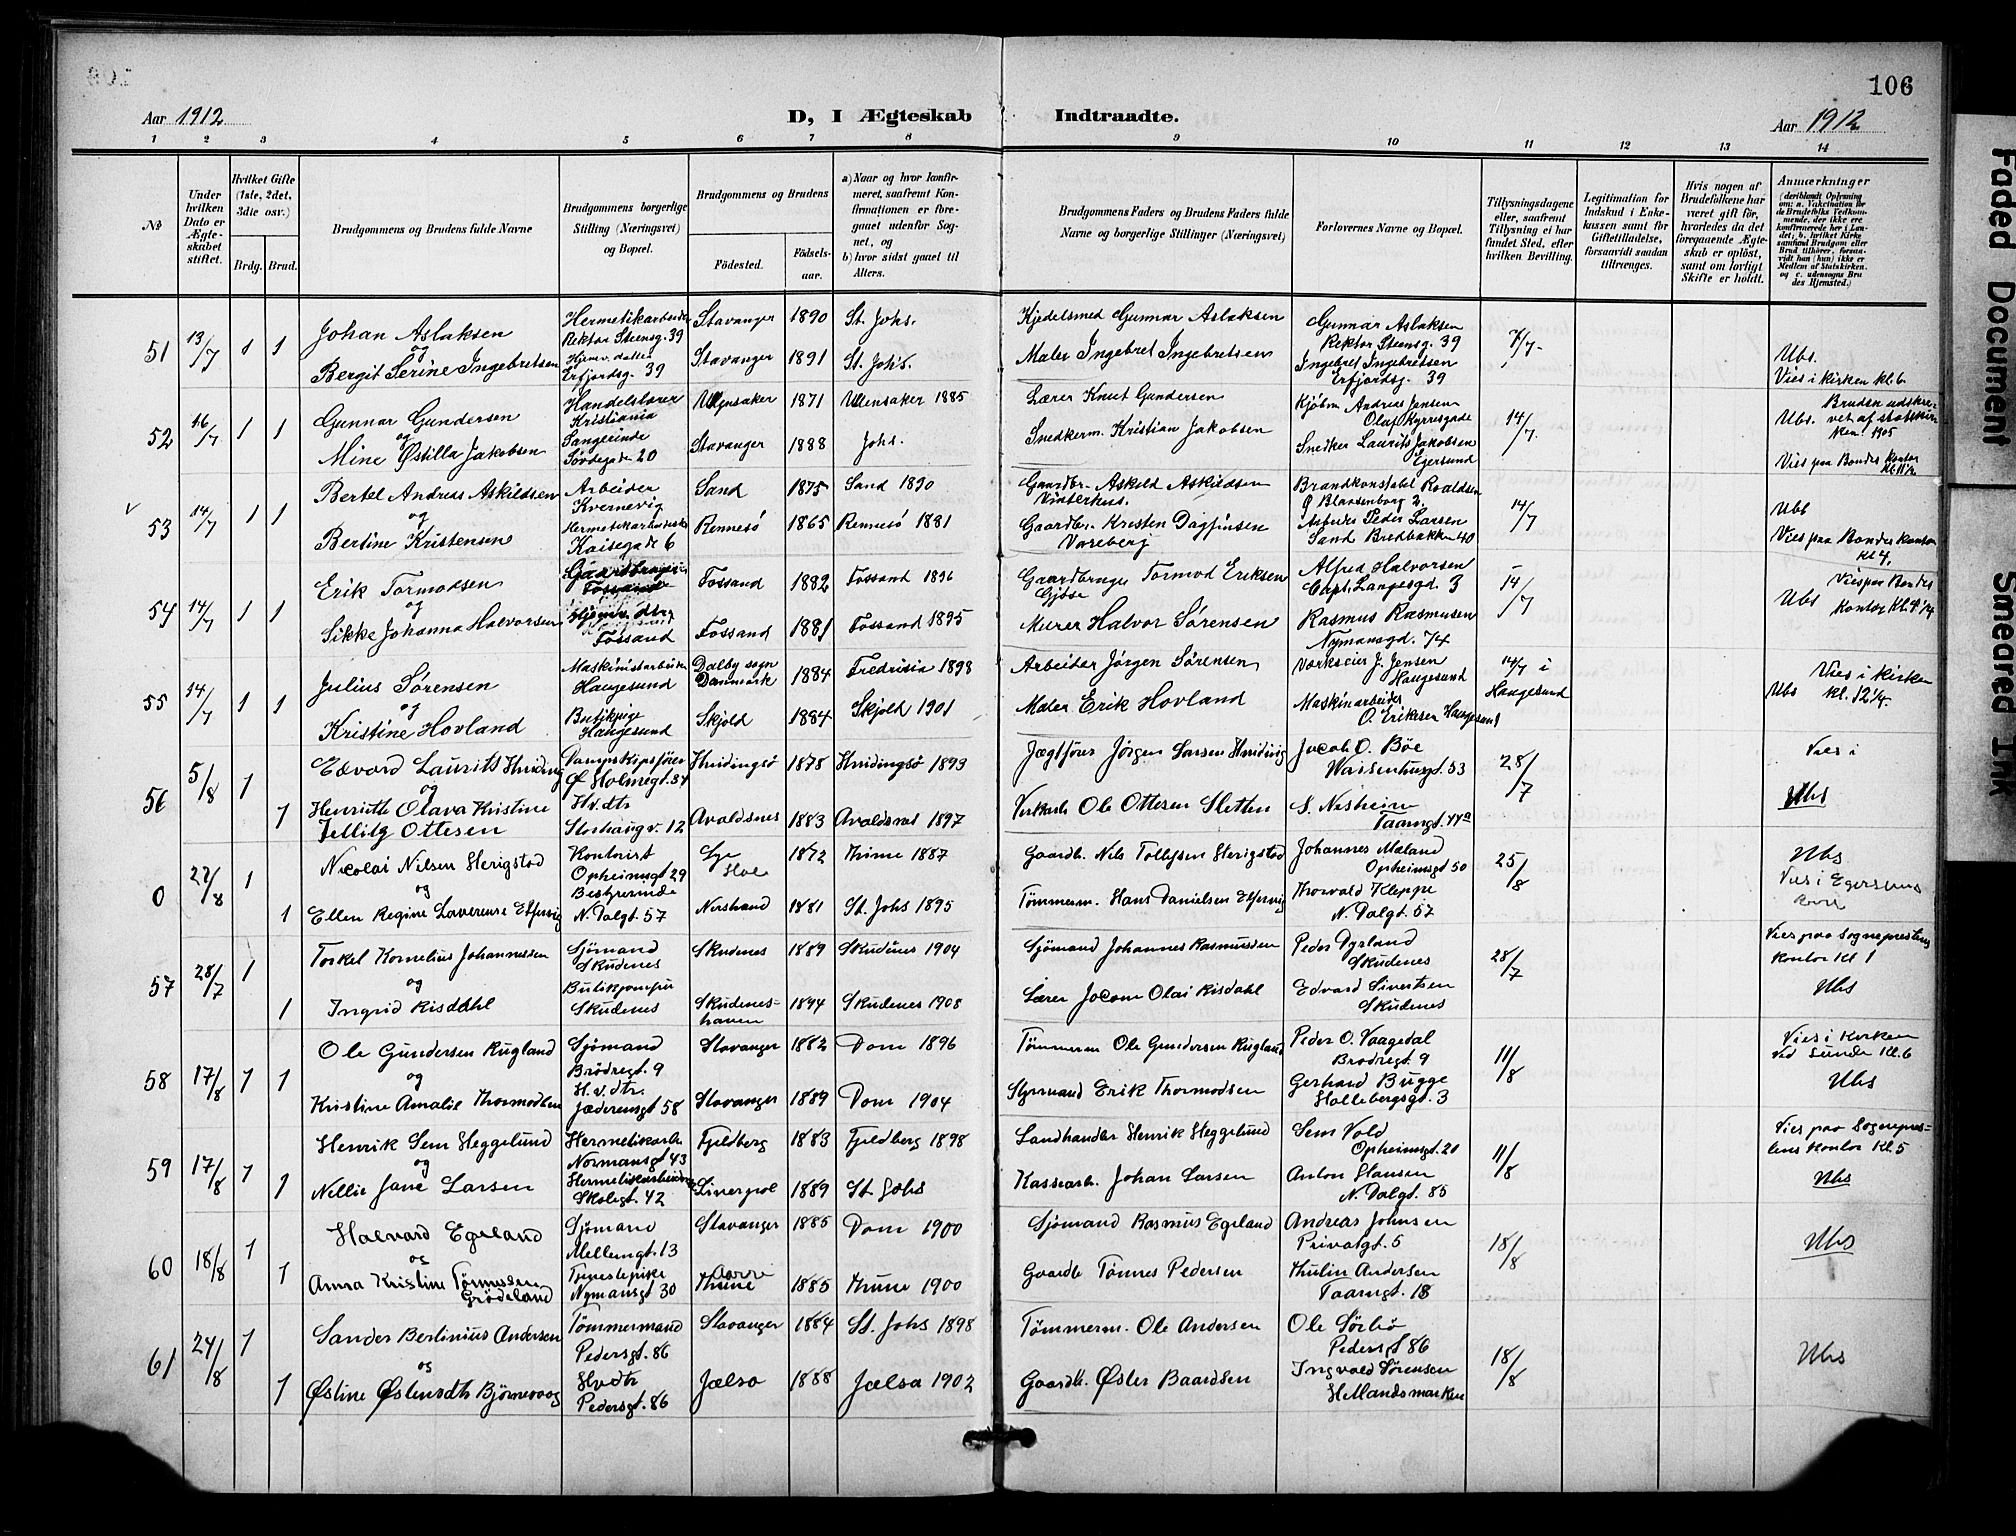 106
Aar 1912
D, I Ægteskab Indtraadte.
Aar 1912
1 2 3 4 5 6 7 8 9 10 11 12 13 14
№
Under hvilken Dato er Ægteskabet stiftet.
Hvilket Gifte (1ste, 2det, 3die osv.)
Brdg. Brud.
Brudgommens og Brudens fulde Navne
Brudgommens borgerlige Stilling (Næringsvei) og Bopæl.
Brudgommens og Brudens
Fødested.
Fødselsaar.
a) Naar og hvor konfirmeret, saafremt Konfirmationen er foregaaet udenfor Sognet, og
b) hvor sidst gaaet til Alters.
Brudgommens Faders og Brudens Faders fulde Navne og borgerlige Stillinger (Næringsvei)
Forlovernes Navne og Bopæl.
Tillysningsdagene eller, saafremt Tillysning ei har fundet Sted, efter hvilken Bevilling.
Legitimation for Indskud i Enkekassen samt for Giftetilladelse, forsaavidt saadan tiltrænges.
Hvis nogen af Brudefolkene har været gift før, hvorledes da det foregaaende Ægteskab er opløst, samt om lovligt Skifte er holdt.
Anmærkninger
51 13/7 1 1
Johan Aslaksen
og
Bergit Serine Ingebretsen
Hermetikarbeider
Rektor Steensg. 39
Hjemv. datter
Erfjordsg. 39
Stavanger 1890 St. Johs.
Stavanger 1891 St. Johs.
Kjedelsmed Gunnar Aslaksen
Maler Ingebret Ingebretsen
Gunnar Aslaksen
Rektor Steensg. 39
Ingebret Ingebretsen
Erfjordsg. 39
7/7.
Ubs.
Vies i Kirken kl. 6
52 16/7 1 1
Gunnar Gundersen
og
Mine Østilla Jakobsen
Handelslærer
Kristiania
Sangerinde
Søvdegade 20
Ullensaker 1871 Ullensaker 1885
Stavanger 1888 Johs.
Lærer Knut Gundersen
Snedkerm. Kristian Jakobsen
Kjøbm. Andreas Jensen
Olaf Kyrresgade
Snedker Laurits Jakobsen
Egersund
14/7.
Bruden udskrevet af statskirken 1905
Ubs.
Vies paa Bondes Kontor
53 14/7 1 1
Bertel Andreas Askildsen
og
Bertine Kristensen
Arbeider
Kvernevig
Kaisegade 6
Sand 1875 Sand 1890
Rennesø 1865 Rennesø 1881
Gaardbr. Askild Askildsen
Vinterhus.
Gaardbr. Kristen Dagfinsen
Vareberg
Brandkonstabel Roaldsen
Ø Blaasenborg 2
Arbeider Peder Larsen
Sand Bredbakken 40
14/7
Ubs
Vies paa Bondes Kontor
kl 4.
54 14/7 1 1
Erik Tormodsen
og
Sikke Johanna Halvorsen
Gaardbruger
Fossand
Hjemv. dtr
Fossand
Fossand 1882 Fossand 1896
Fossand 1881 Fossand 1895
Gaardbruger Tormod Eriksen
Gjøse
Murer Halvor Sørensen
Alfred Halvorsen
Capt. Langesgd. 3
Rasmus Rasmussen
Nymansgd. 74
14/7
Vies paa Bondes
Ubs Kontor Kl. 4 1/4
55 14/7 1 1
Julius Sørensen
og
Kristine Hovland
Maskinistarbeider
Haugesund
Butikpige
Haugesund
Dalby sogn
Danmark 1884 Fredrisia 1898
Skjold 1884 Skjold 1901
Arbeider Jørgen Sørensen
Maler Erik Hovland
Værkseier J. Jensen
Haugesund
Maskinarbeider
O. Eriksen Haugesund
14/7 i
Haugesund
Vies i Kirken
Ubs Kl. 12 1/4.
56 5/8 1 1
Edvard Laurits Hviding
og
Henriette Olava Kristine
Jellity Ottesen
Dampskipsfører
Ø Holmegt. 34
Hv. dtr
Storhaugv. 12
Hvidingsø 1878 Hvidingsø 1893
Avaldsnes 1883 Avaldsnes 1897
Jægtfører Jørgen Larsen Hviding
Verkarb. Ole Ottesen Sletten
Jacob O. Bøe
Waisenhusgt. 53
S. Nesheim
Taarngt. 44a
28/7
Vies i
Ubs
0 27/8 1 1
Nicolai Nilsen Herigstad
og
Ellen Regine Laverense Elfersvig
Kontorist
Opheimsgt 29
Bestyrerinde
N. Dalgt. 57
Lye
Hole 1872 Thime 1887
Nerstrand 1881 St. Johs 1895
Gaardb. Nils Tollefsen Herigstad
Tømmerm. Hans Danielsen Elfersvig
Johannes Meland
Opheimsgt 50
Thorvald Kleppe
N. Dalgt. 57
25/8
Ubs
Vies i Egersund
57 28/7 1 1
Torkel Kornelius Johannessen
og
Ingrid Risdahl
Sjømand
Skudenes
Butikjomfru
Skudenes
Skudenes 1889 Skudenes 1904
Skudeneshavn 1894 Skudenes 1908
Sjømand Johannes Rasmussen
Lærer Jocom Olai Risdahl
Peder Dyrland
Skudenes
Edvard Sivertsen
Skudenes
28/7
Vies paa Sogneprestens
kontor Kl 1
Ubs
58 17/8 1 1
Ole Gundersen Rugland
og
Kristine Amalie Thormodsen
Sjømand
Brødregt. 9
H. v. dtr.
Jæderensgt 58
Stavanger 1882 Dom 1896
Stavanger 1889 Dom 1904
Tømmerm Ole Gundersen Rugland
Styrmand Erik Thormodsen
Peder O. Vaagedal
Brødregt. 9
Gerhard Bugge
Hollebergsgt. 3
11/8
Vies i Kirken
ved Sunde Kl. 6
Ubs
59 17/8 1 1
Henrik Sem Heggelund
og
Nellie Jane Larsen
Hermetikarb.
Normansgt 43
Hermetikarbeiderske
Skolegt. 42
Fjeldberg 1883 Fjeldberg 1898
Liverpol 1889 St. Johs
Landhandler Henrik Heggelund
Kassearb. Johan Larsen
Sem Vold
Opheimsgt. 20
Anton Hansen
N. Dalgt. 85
11/8
Vies paa Sogneprestens kontor Kl. 5
Ubs
60 18/8 1 1
Halvard Egeland
og
Anna Kristine Tønnessen
Grødeland
Sjømand
Mellemgt. 13
Tjenestepike
Nymansgt 30
Stavanger 1885 Dom 1900
Thime 1885 Thime 1900
Sjømand Rasmus Egeland
Gaardb Tønnes Pedersen
Andreas Johnsen
Privatgt. 5
Thulin Andersen
Taarngt. 18
18/8
Ubs
61 24/8 1 1
Sander Bertinius Andersen
og
Østine Østensdtr Bjørnevaag
Tømmermand
Pedersgt. 86
Hvdtr
Pedersgt. 86
Stavanger 1884 St. Johs 1898
Jælsa 1888 Jælsa 1902
Tømmerm. Ole Andersen
Gaardb. Øster Baardsen
Ole Sørbø
Pedersgt 86
Ingvald Sørensen
Hetlandsmarken
18/8
Ubs
Faded Document
Smeared Ink